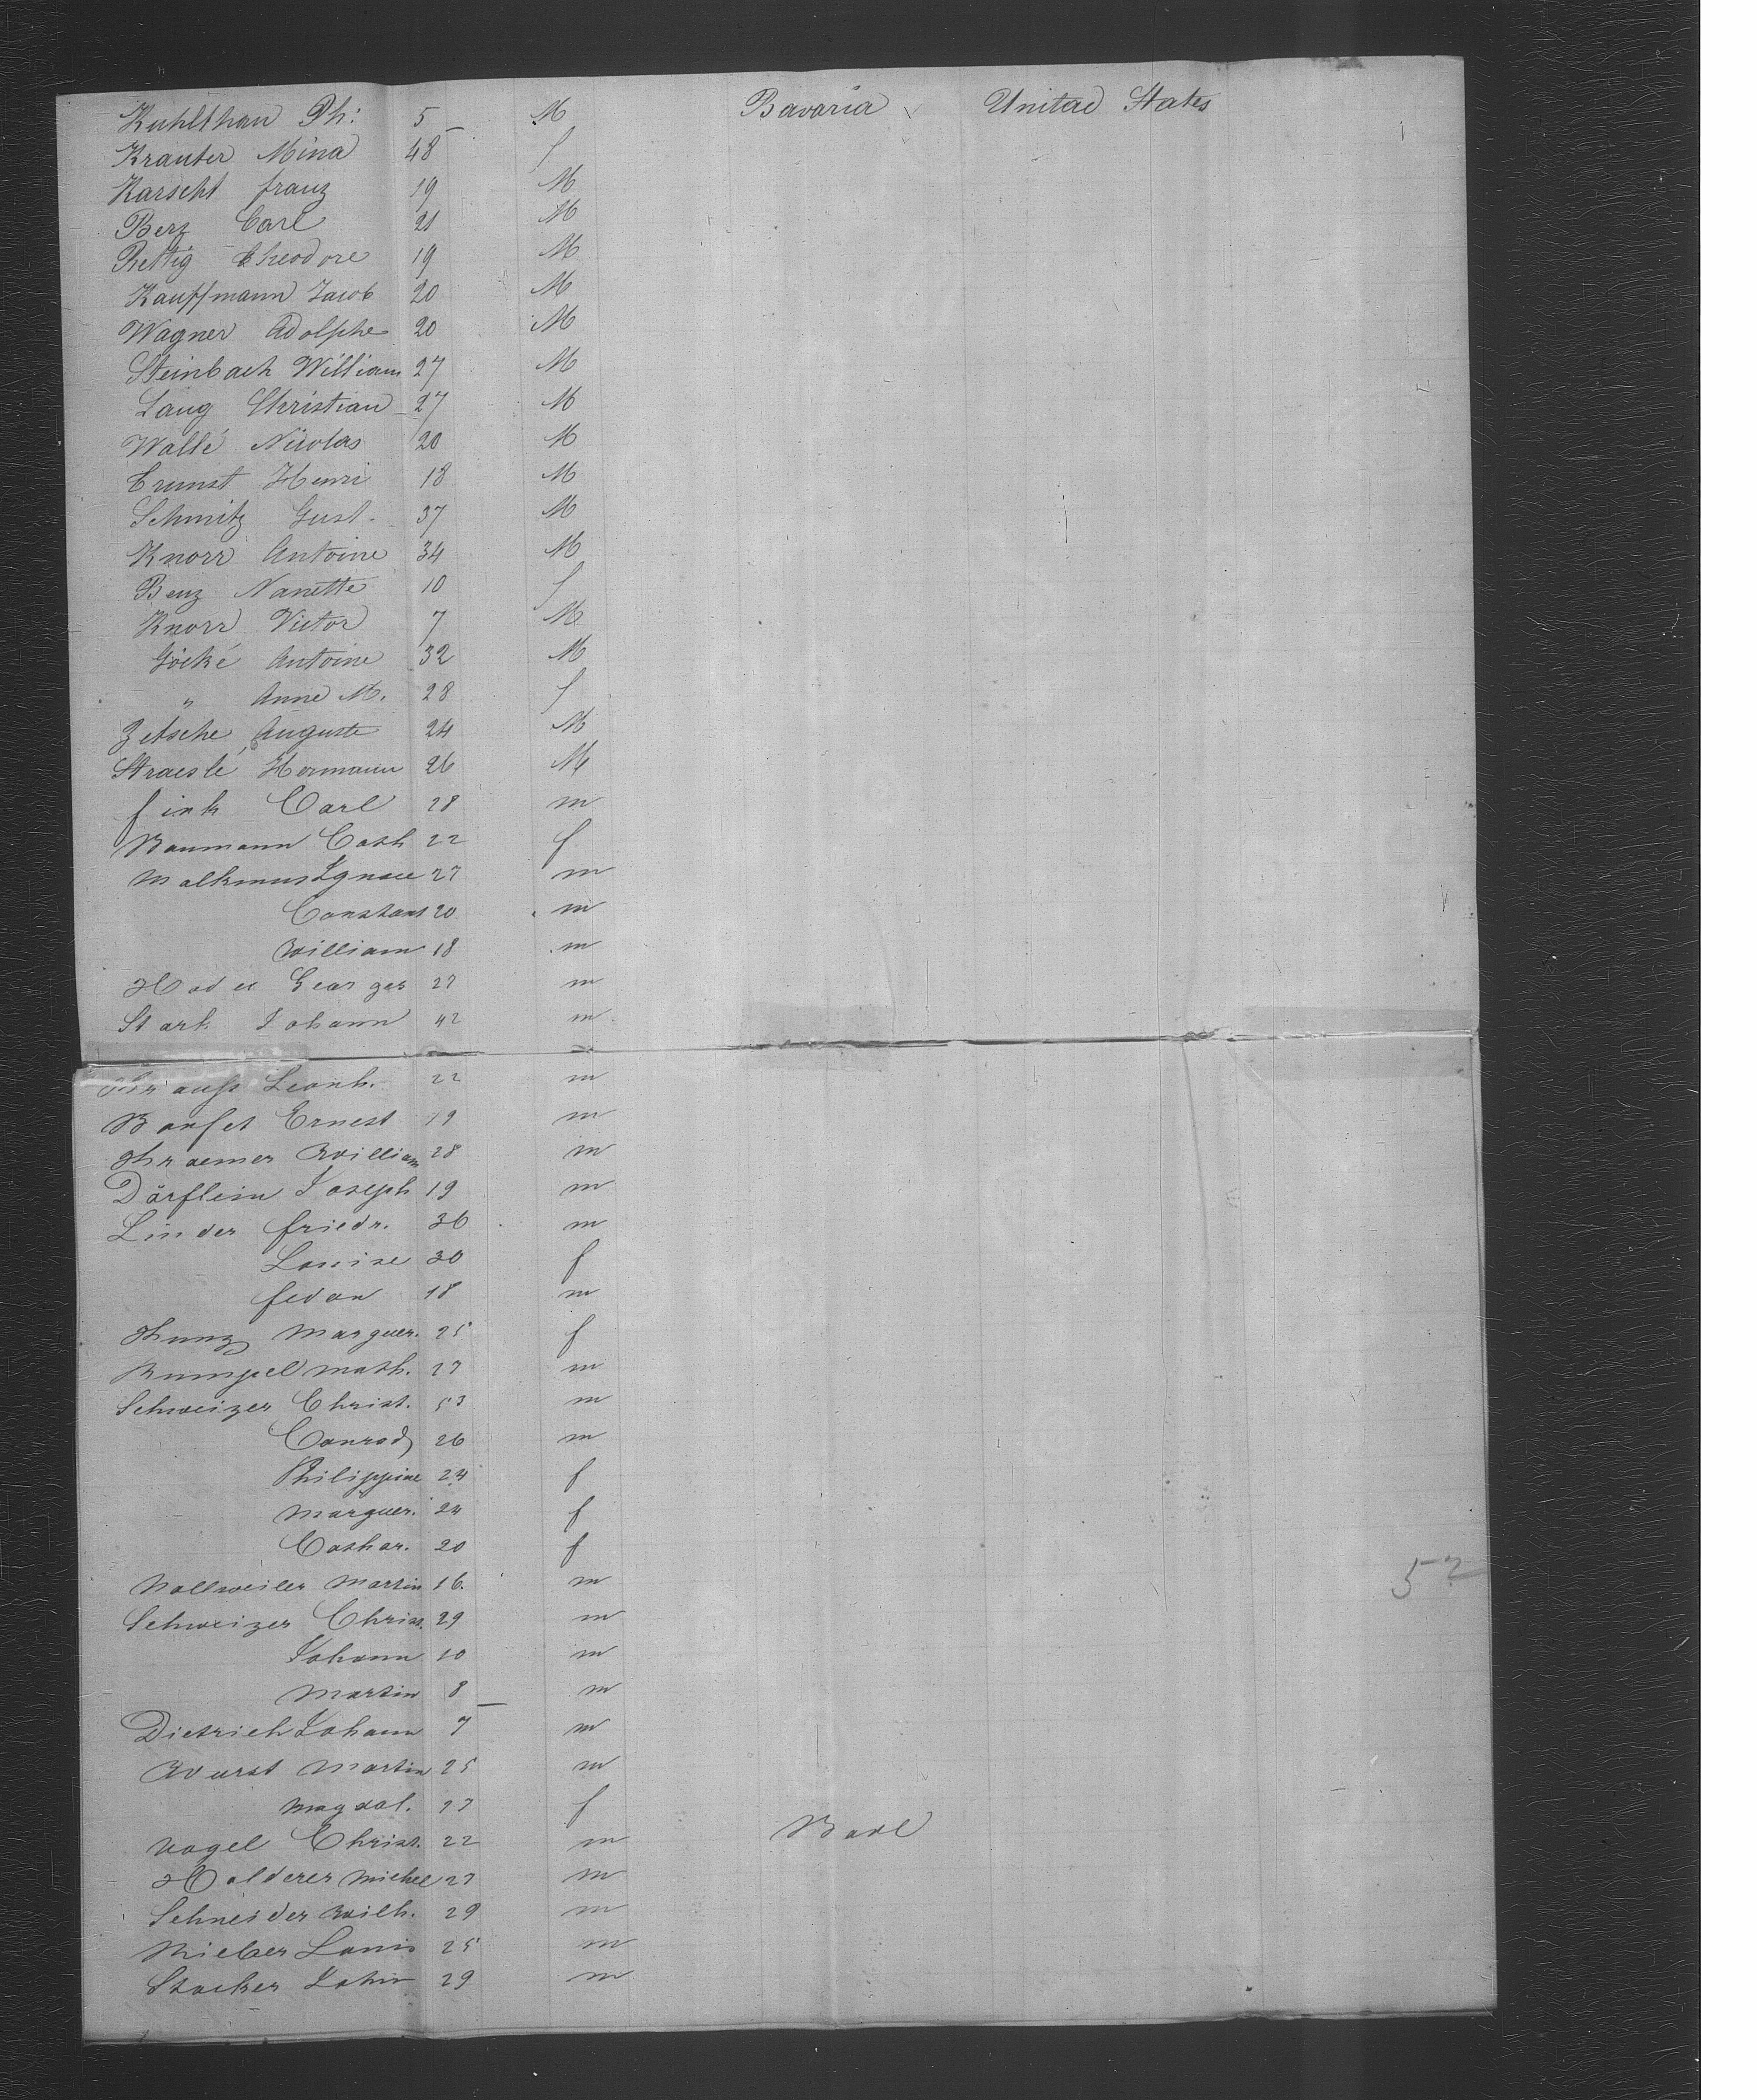 Kuhlthau Ph: 5 M Bavaria United States
Krauter Mina 48 f
Karscht franz 19 M
Berz Carl 21 M
Rettig theodore 19 M
Kauffmann Jacob 20 M
Wagner Adolphe 20 M
Steinbach William 27 M
Laug Christian 27 M
Wallé Nicolas 20 M
Ernnst Henri 18 M
Schmitz Gust. 37 M
Knorr Antoine 34 M
Benz Nanette 10 f
Knorr Victor 7 M
Göcké Antoine 32 M
" Anne M. 28 f
Zetsche Auguste 24 M
Straeslé Hermann 26 M
fink Carl 28 m
Baumann Cath 22 f
Malkmus Ignace 27 m
Constant 20 m
William 18 m
Georges 27 m
Stark Johann 42 m
Leonh. 22 m
Ernest 19 m
Kraemer William 28 m
Dörflein Joseph 19 m
Linder friedr. 36 m
Louise 30 f
18 m
Kunz Marguer. 25 f
Rumpel Math. 27 m
Schweizer Christ. 53 m
Conrad 26 m
Philippine 24 f
Marguer. 24 f
Cathar. 20 f
Nollweiler Martin 16. m 52
Schweizer Christ. 29 m
Johann 10 m
Martin 8 m
Dietrich Johann 7 m
Wurst Martin 25 m
Magdal. 27 f
Vogel Christ. 22 m
Holderer Michel 27 m
Schneider Wilh. 29 m
Louis 25 m
Stocker John 29 m